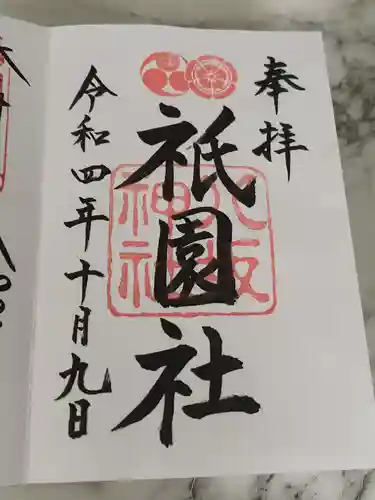 奉拝
八坂神社
祇園社
令和四年十月九日